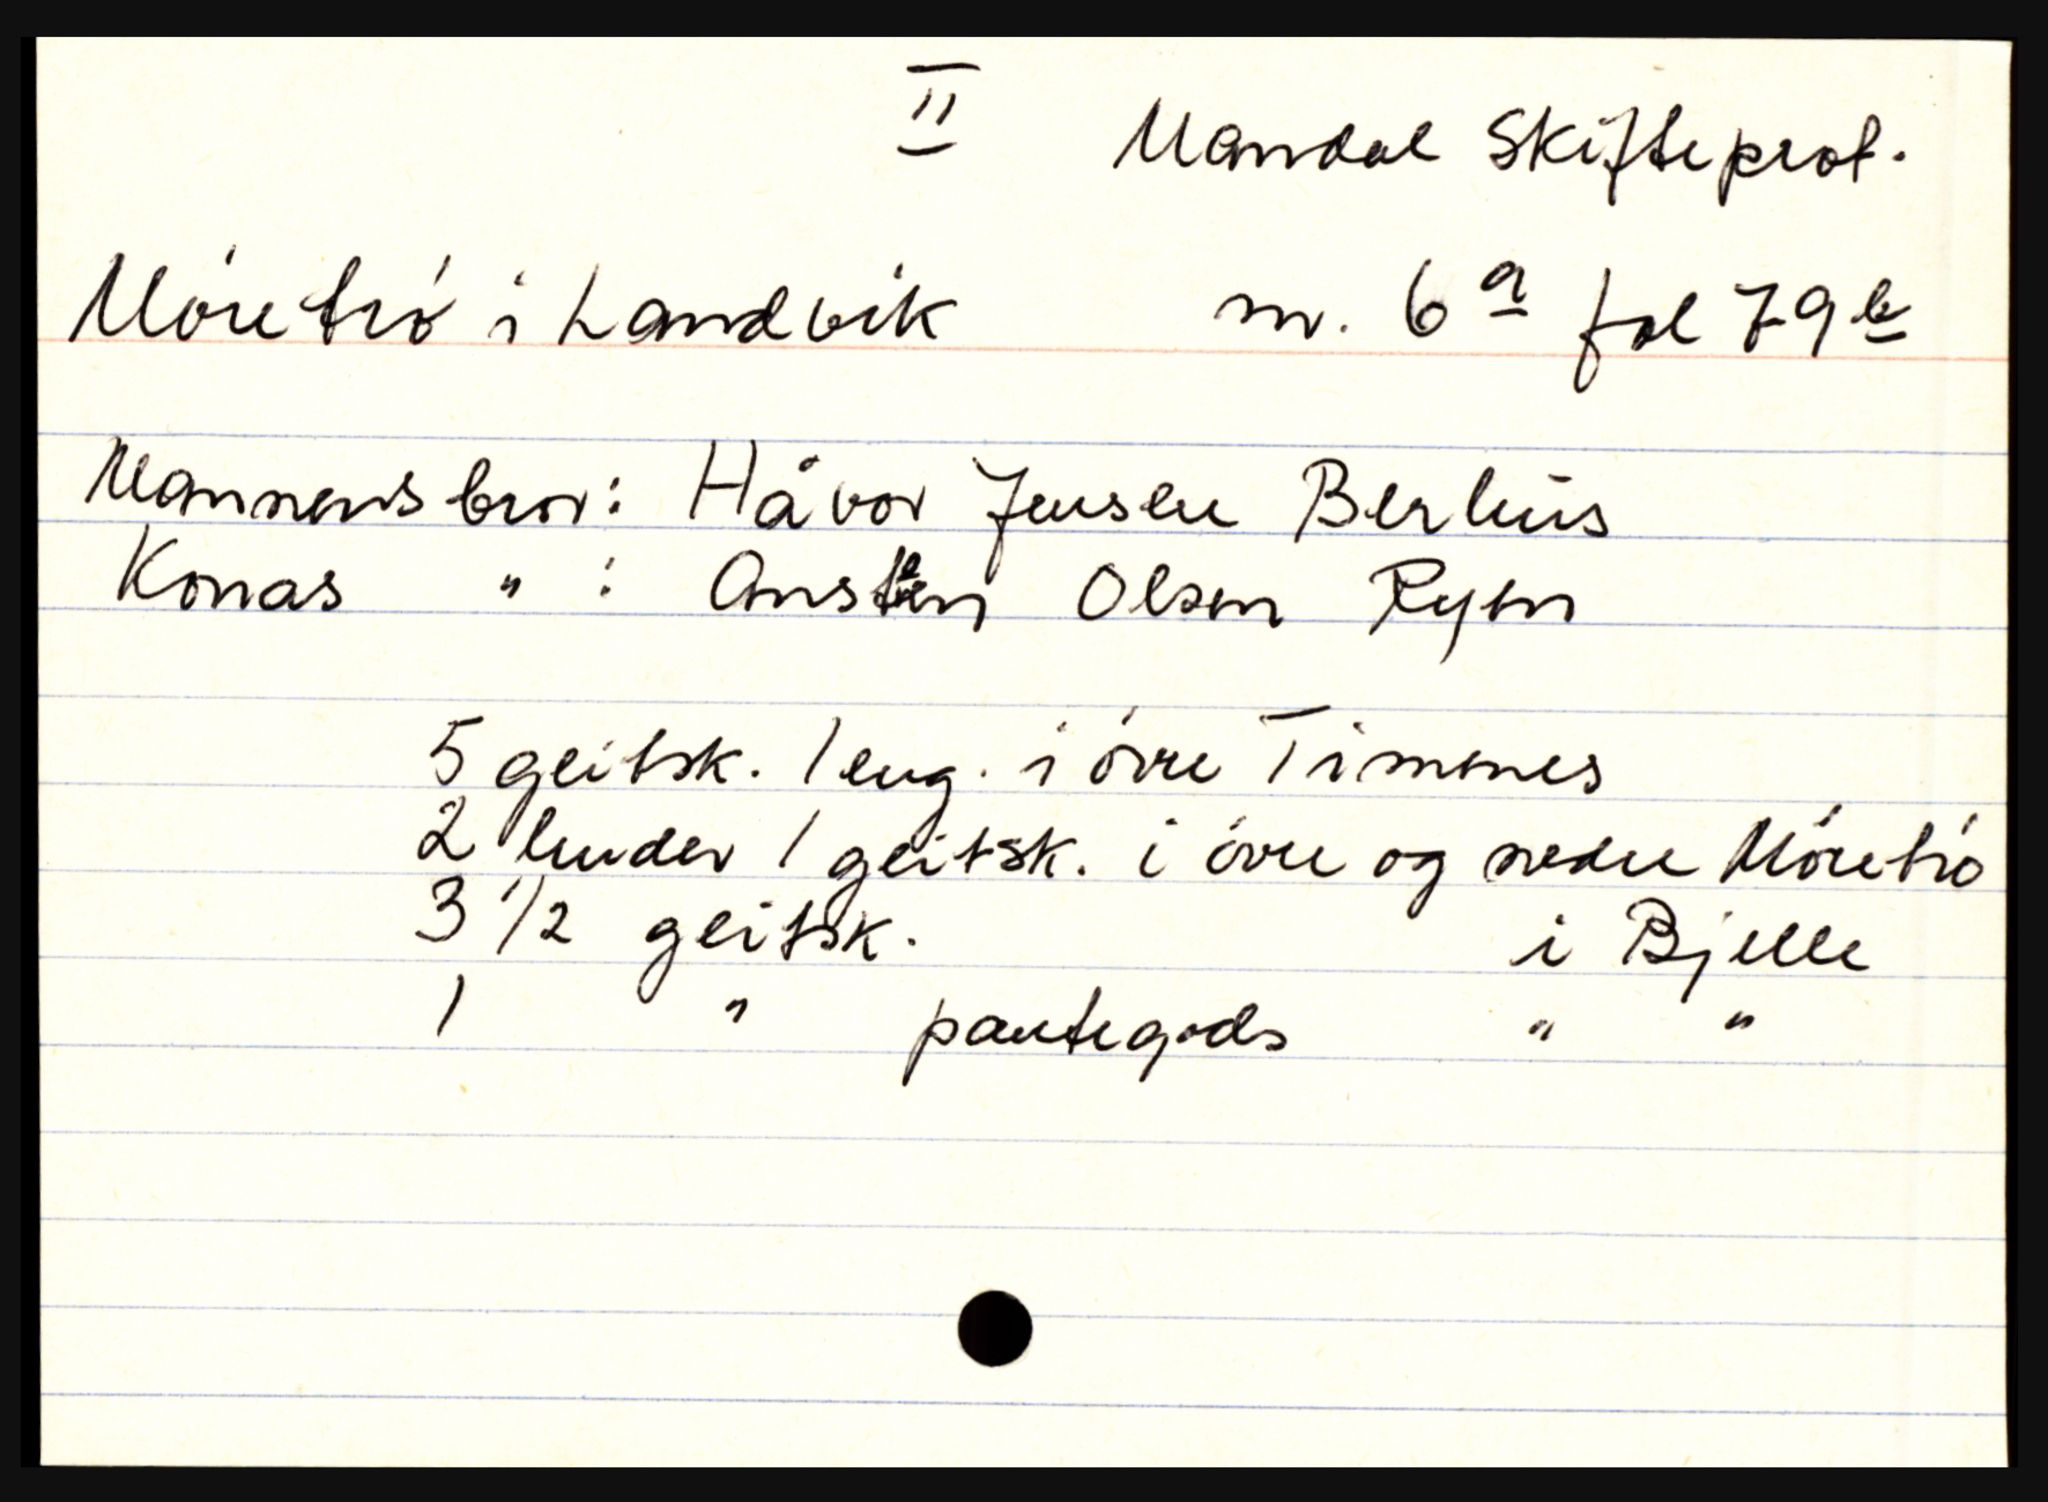 II Mandal Skifteprot.
Möretrö i Landvik nr. 6a fol 79b
Mannens bror: Håvor Jensen Berhus
Konas " : Ansten Olsen Ryen
5 geitsk. 1 eng. i övre Timenes
2 huder 1 geitsk. i övre og nedre Möretrö
3 1/2 geitsk. i Bjelle
1 " pantegods " "